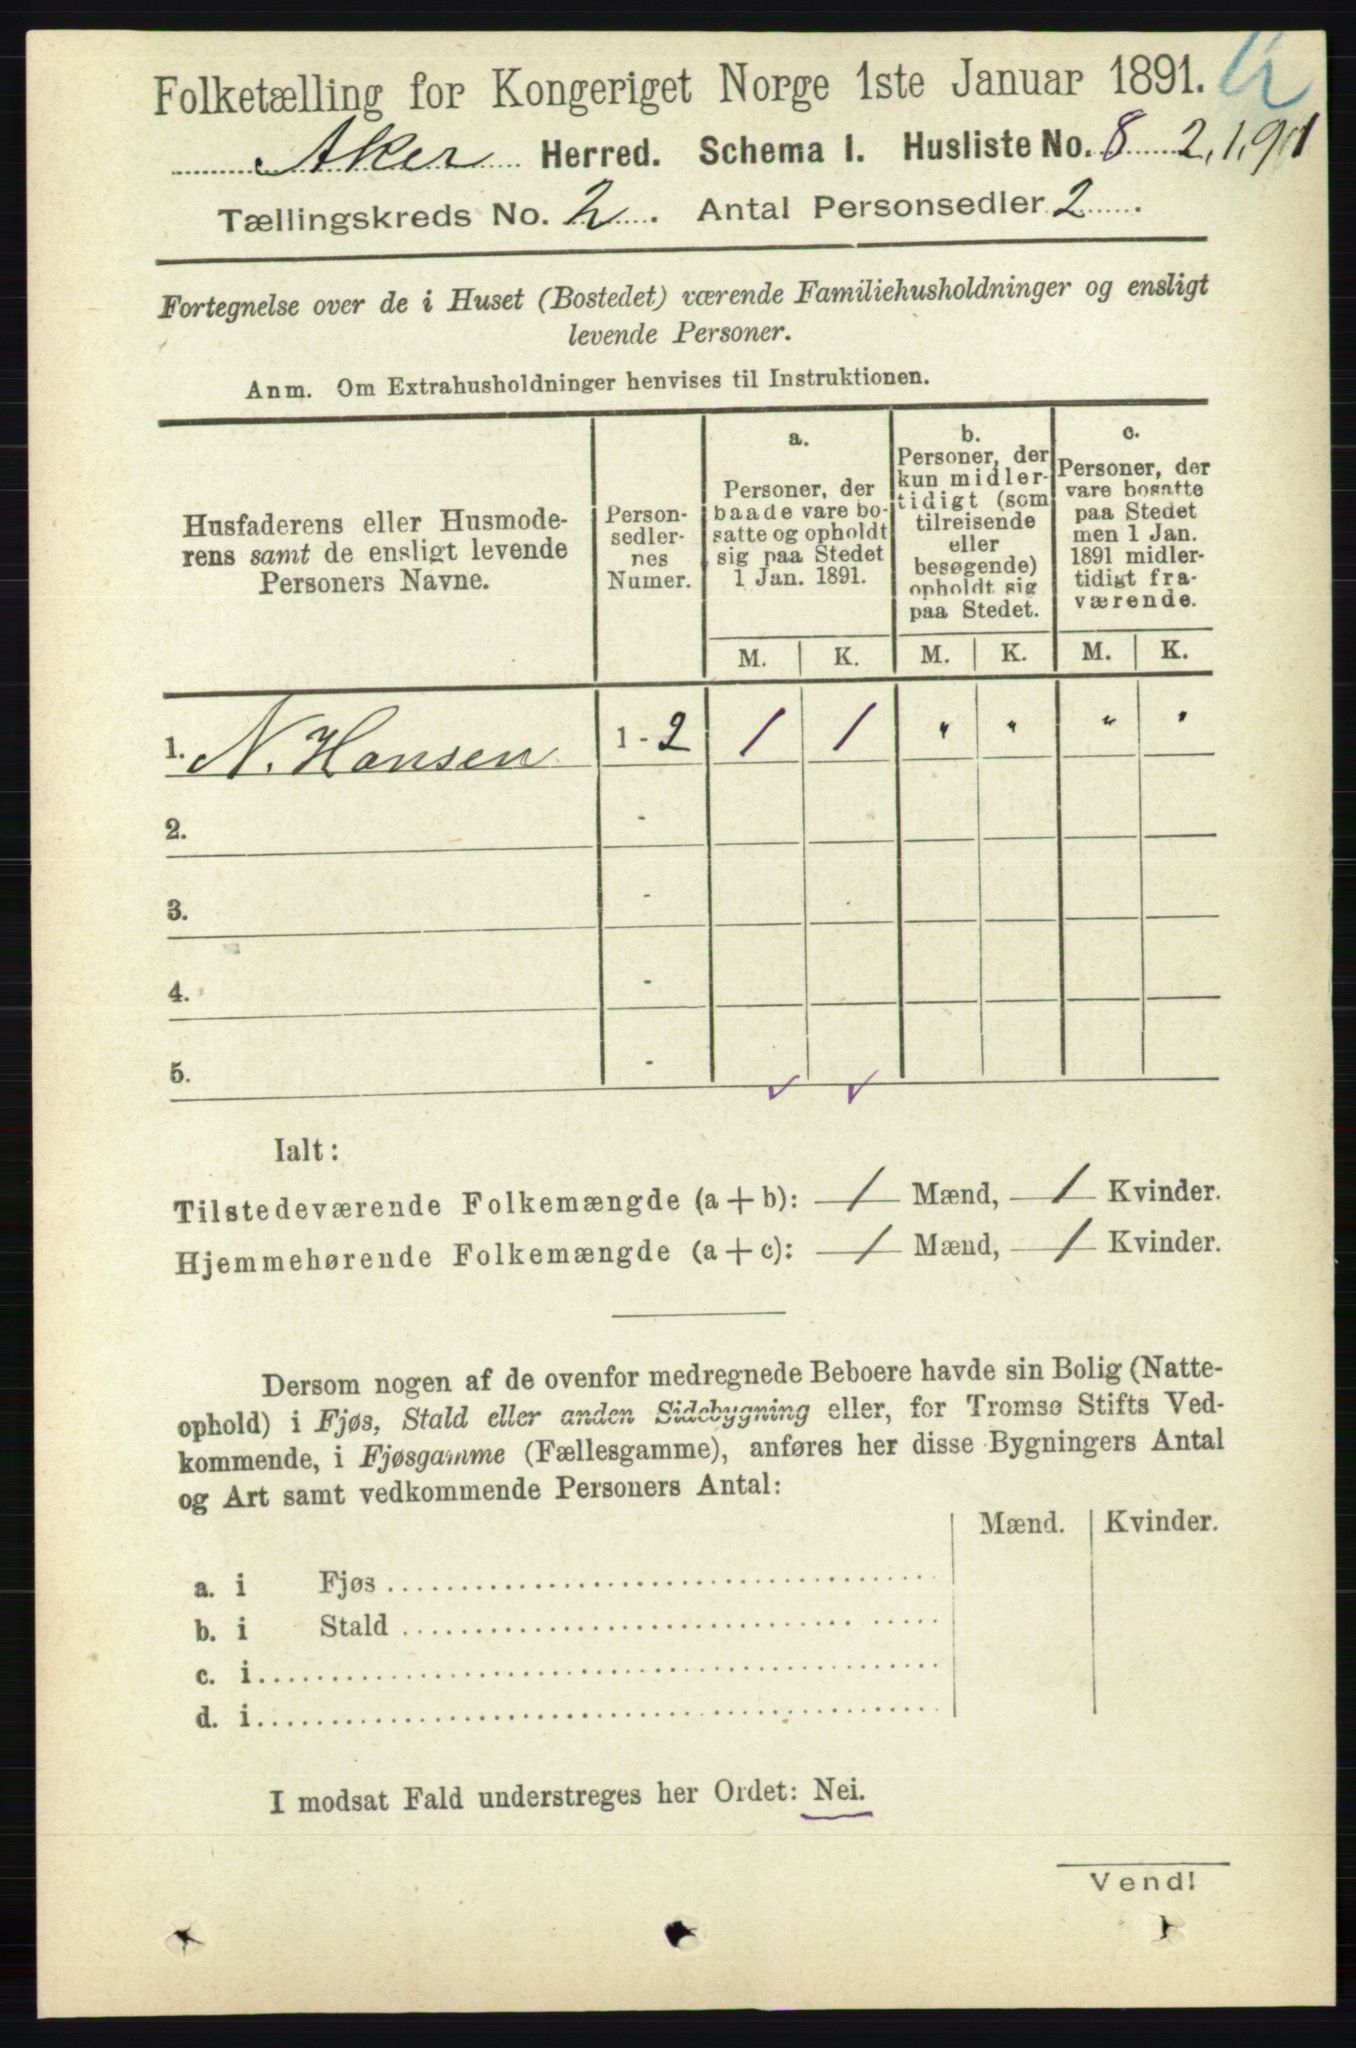 Folketælling for Kongeriget Norge 1ste Januar 1891.
Aker Herred. Schema I. Husliste No. 8 2,1,91
Tællingskreds No. 2. Antal Personsedler 2.
Fortegnelse over de i Huset (Bostedet) værende Familiehusholdninger og ensligt
levende Personer.
Anm. Om Extrahusholdninger henvises til Instruktionen.
Husfaderens eller Husmode-
rens samt de ensligt levende
Personers Navne.
Person-
sedler-
nes
Numer.
a.
Personer, der
baade vare bo-
satte og opholdt
sig paa Stedet
1 Jan. 1891.
b.
Personer, der
kun midler-
tidigt (som
tilreisende
eller
besøgende)
opholdt sig
paa Stedet.
c.
Personer, der
vare bosatte
paa Stedet
men 1 Jan.
1891 midler-
tidigt fra-
værende.
M. K. M. K. M. K.
1. N. Hansen 1 - 2 1 1 " " " "
2. -
3. -
4. -
5. -
Ialt:
Tilstedeværende Folkemængde (a + b): 1 Mænd, 1 Kvinder.
Hjemmehørende Folkemængde (a + c): 1 Mænd, 1 Kvinder.
Dersom nogen af de ovenfor medregnede Beboere havde sin Bolig (Natte-
ophold) i Fjøs, Stald eller anden Sidebygning eller, for Tromsø Stifts Ved-
kommende, i Fjøsgamme (Fællesgamme), anføres her disse Bygningers Antal
og Art samt vedkommende Personers Antal:
Mænd. Kvinder.
a. i Fjøs
b. i Stald
c. i
d. i
I modsat Fald understreges her Ordet: Nei.
Vend!